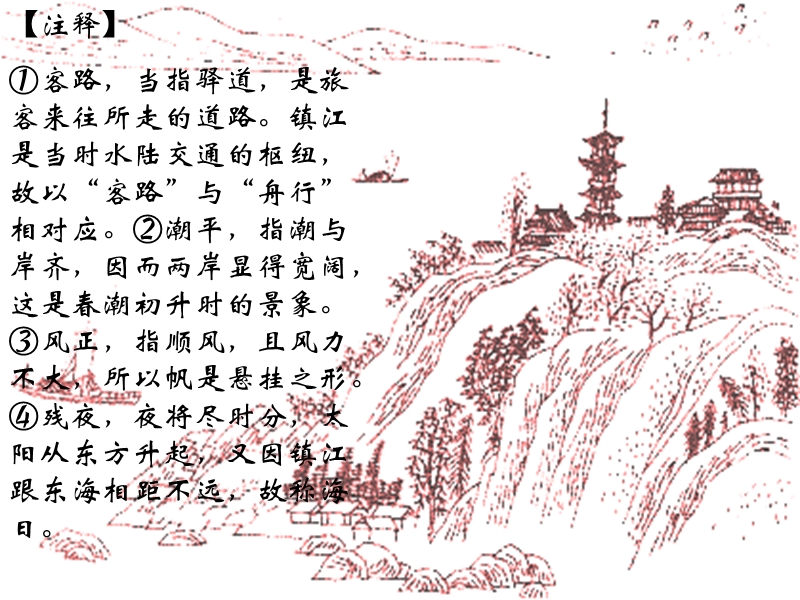 【注释】
①客路，当指驿道，是旅
客来往所走的道路。镇江
是当时水陆交通的枢纽，
故以“客路”与“舟行”
相对应。②潮平，指潮与
岸齐，因而两岸显得宽阔，
这是春潮初升时的景象。
③风正，指顺风，且风力
不大，所以帆是悬挂之形。
④残夜，夜将尽时分，太
阳从东方升起，又因镇江
跟东海相距不远，故称海
日。